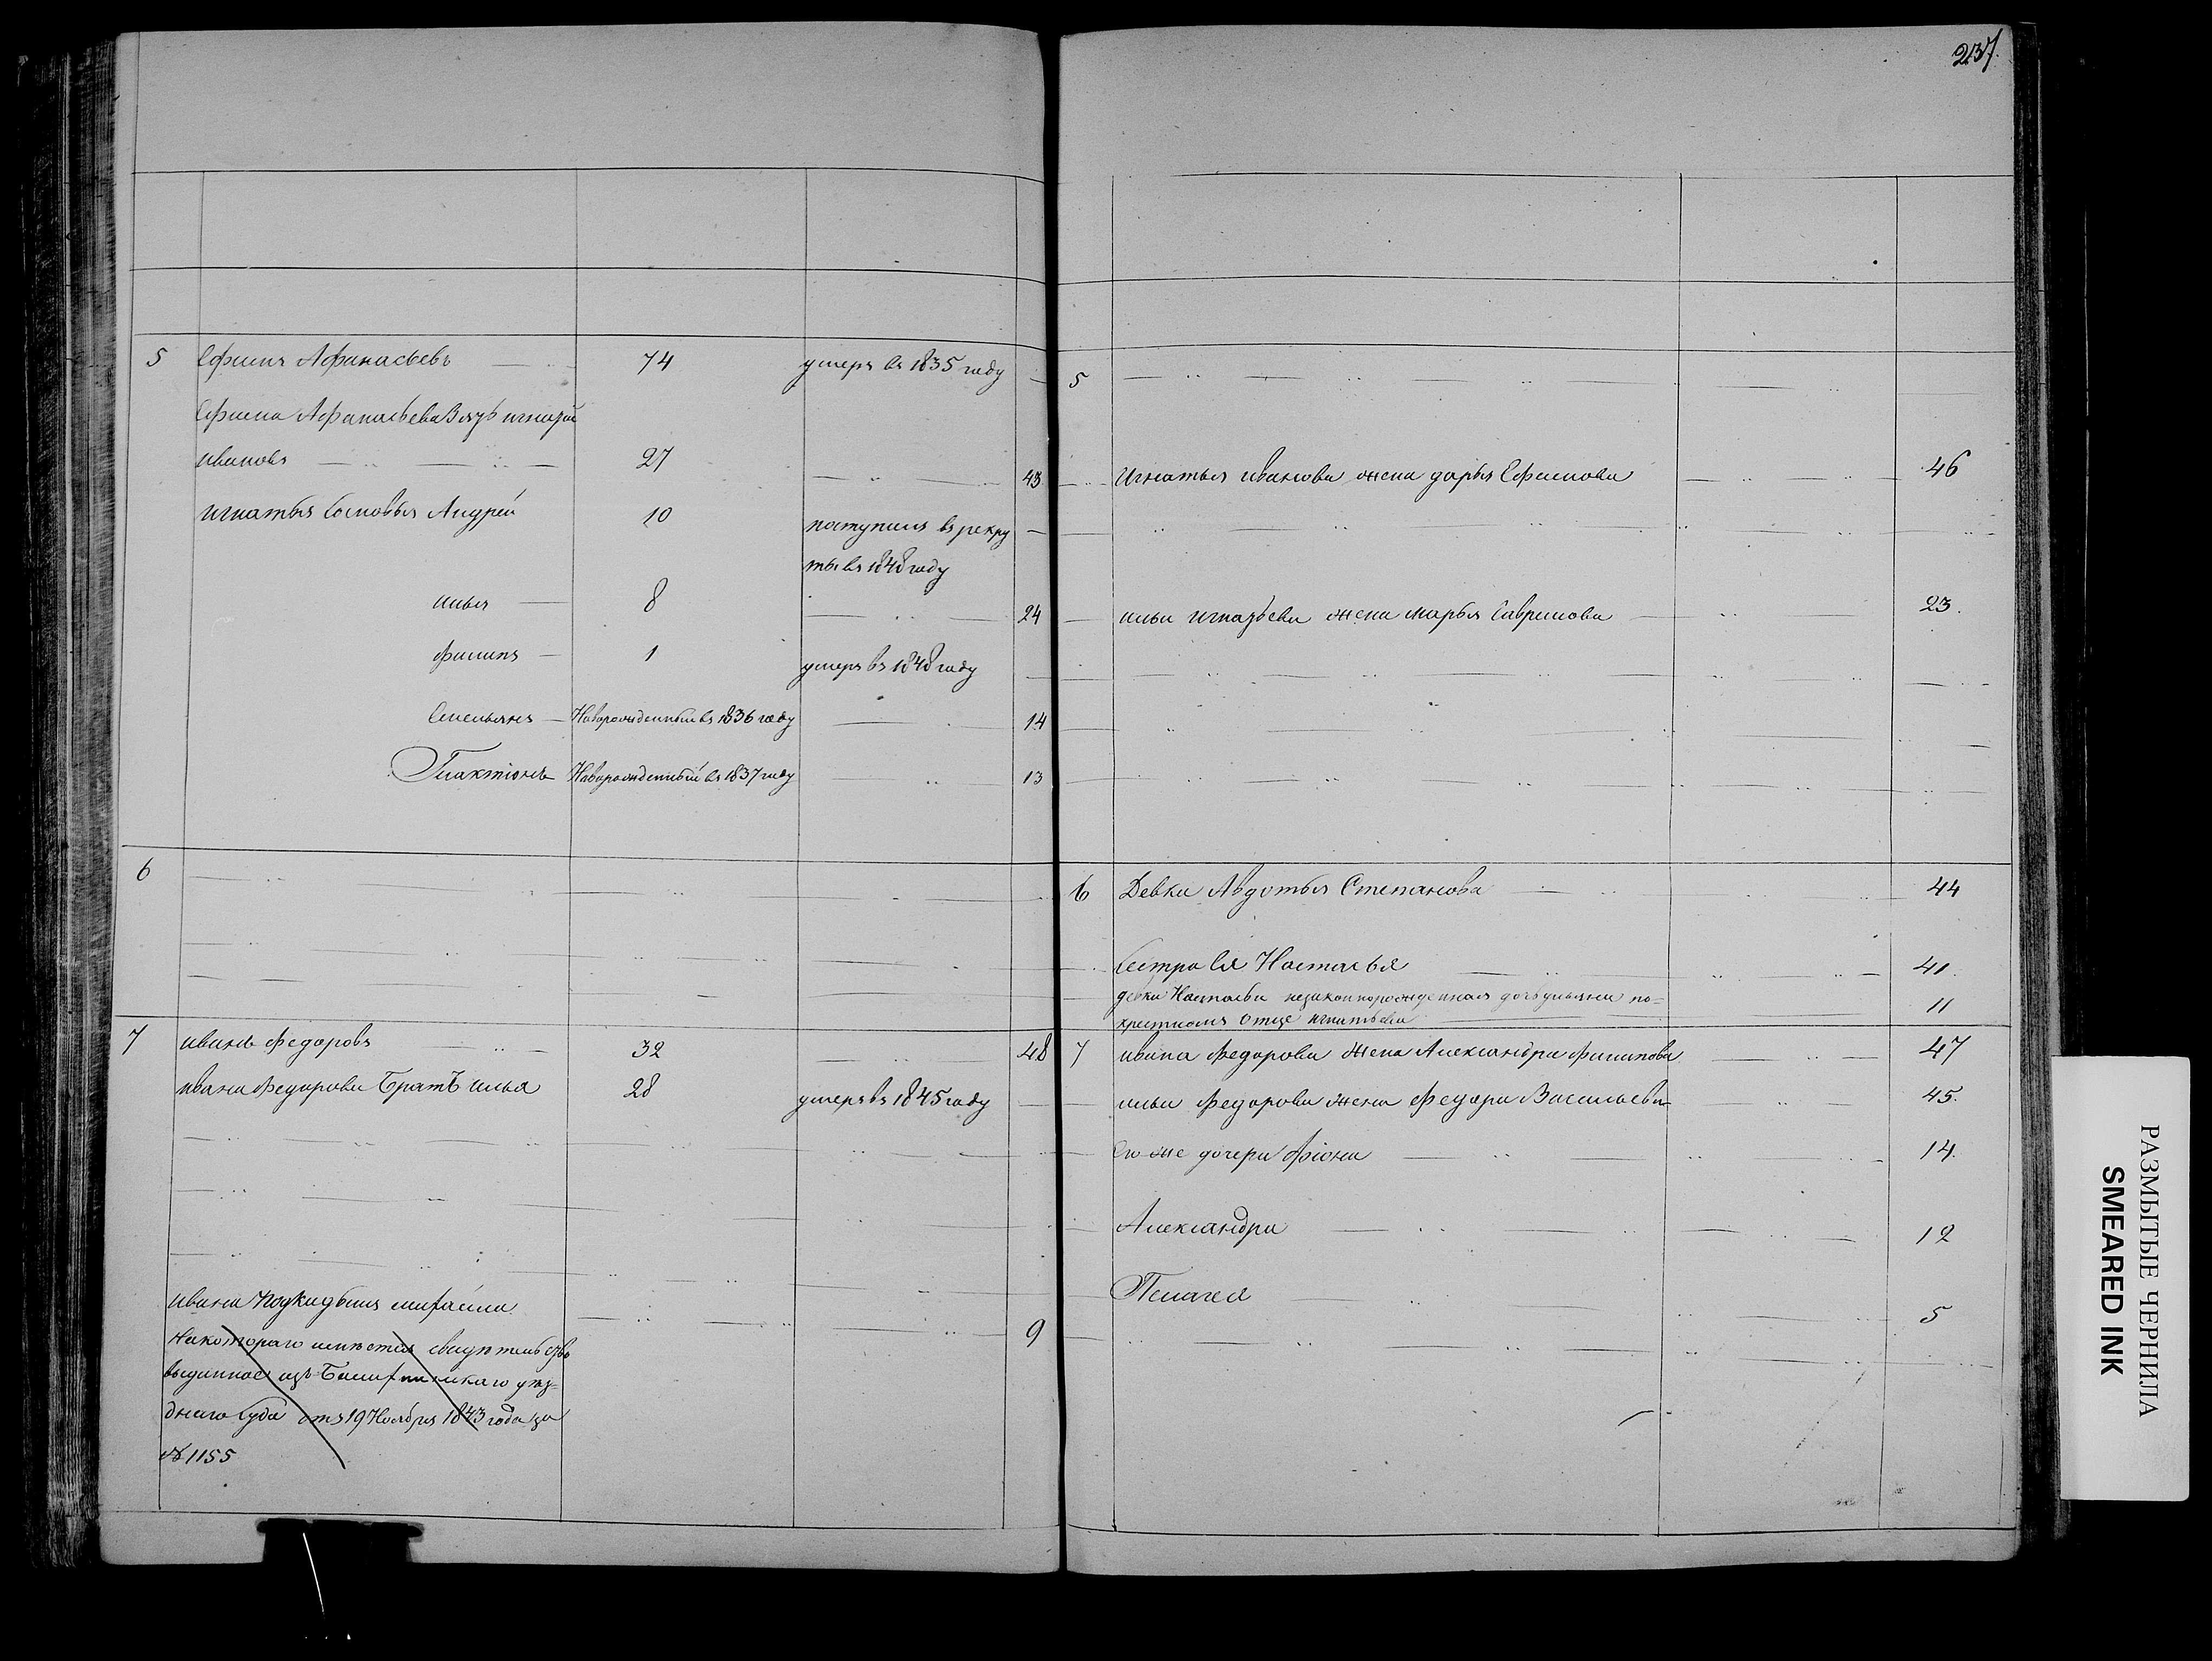 237.
5 Ефимъ Афанасьевъ 74 умеръ въ 1835 году 5
Ефима Афанасьева Зять игнатей
ивановъ 27 43 Игнатья иванова жена дарья Ефимова 46
игнатья Сыновья Андрей 10 поступилъ въ рекру
ты въ 1848 году
илья 8 24 ильи игнатьева жена марья Гаврилова 23.
филипъ 1 умеръ въ 1848 году
Емельянъ Новорожденный въ 1836 году 14
Галактіонъ Новорожденный въ 1837 году 13
6 6 Девка Авдотья Степанова 44
Сестра Ея Настасья 41
девки Настасьи незаконнорожденная дочь ульяна по=
крестномъ отце игнатьева 11
7 иванъ федоровъ 32 48 7 ивана федорова жена Александра филипова 47
ивана федорова Братъ илья 28 умеръ въ 1845 году ильи федорова жена федора Васильева 45.
Ево же дочери фіона 14.
Александра 12
Пелагея 5
ивана подкидышъ михайла 9
На котораго имѣется свидѣтельство
выданное изъ уѣз=
днаго суда отъ 19 Ноября 1843 года за
№ 1155
РАЗМЫТЫЕ ЧЕРНИЛА
SMEARED INK